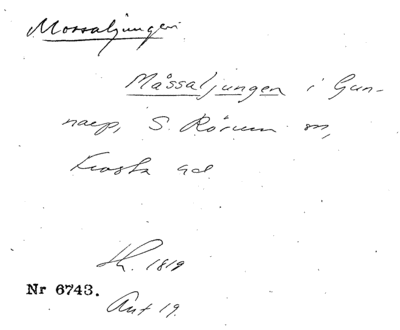 Mossaljungen.
Måssaljungen i Gun-
narp, S. Rörum sn,
Frosta hd
Sk. 1819
Nr 6743.
Ant 19.